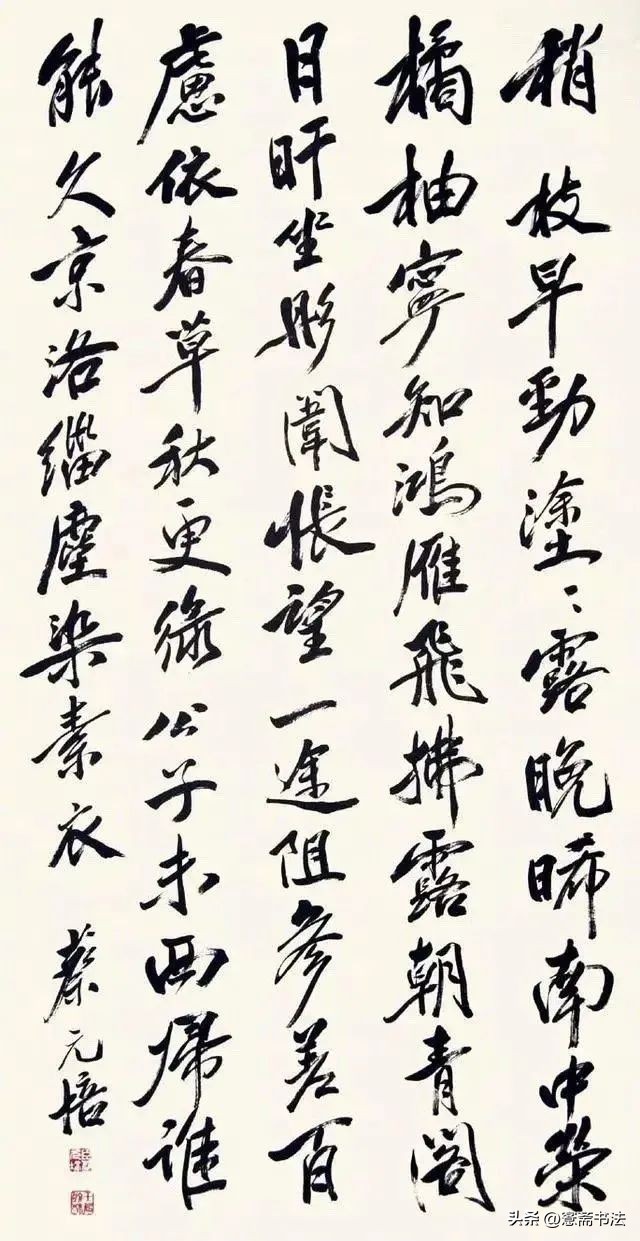 稍枝早勁塗〻露晚晞南中榮
橘柚寧知鴻雁飛拂露朝青閣
日旰坐彤闈悵望一途阻參差百
慮依春草秋更綠公子未西歸誰
能久京洛緇塵染素衣
蔡元培
头条@愙斋书法